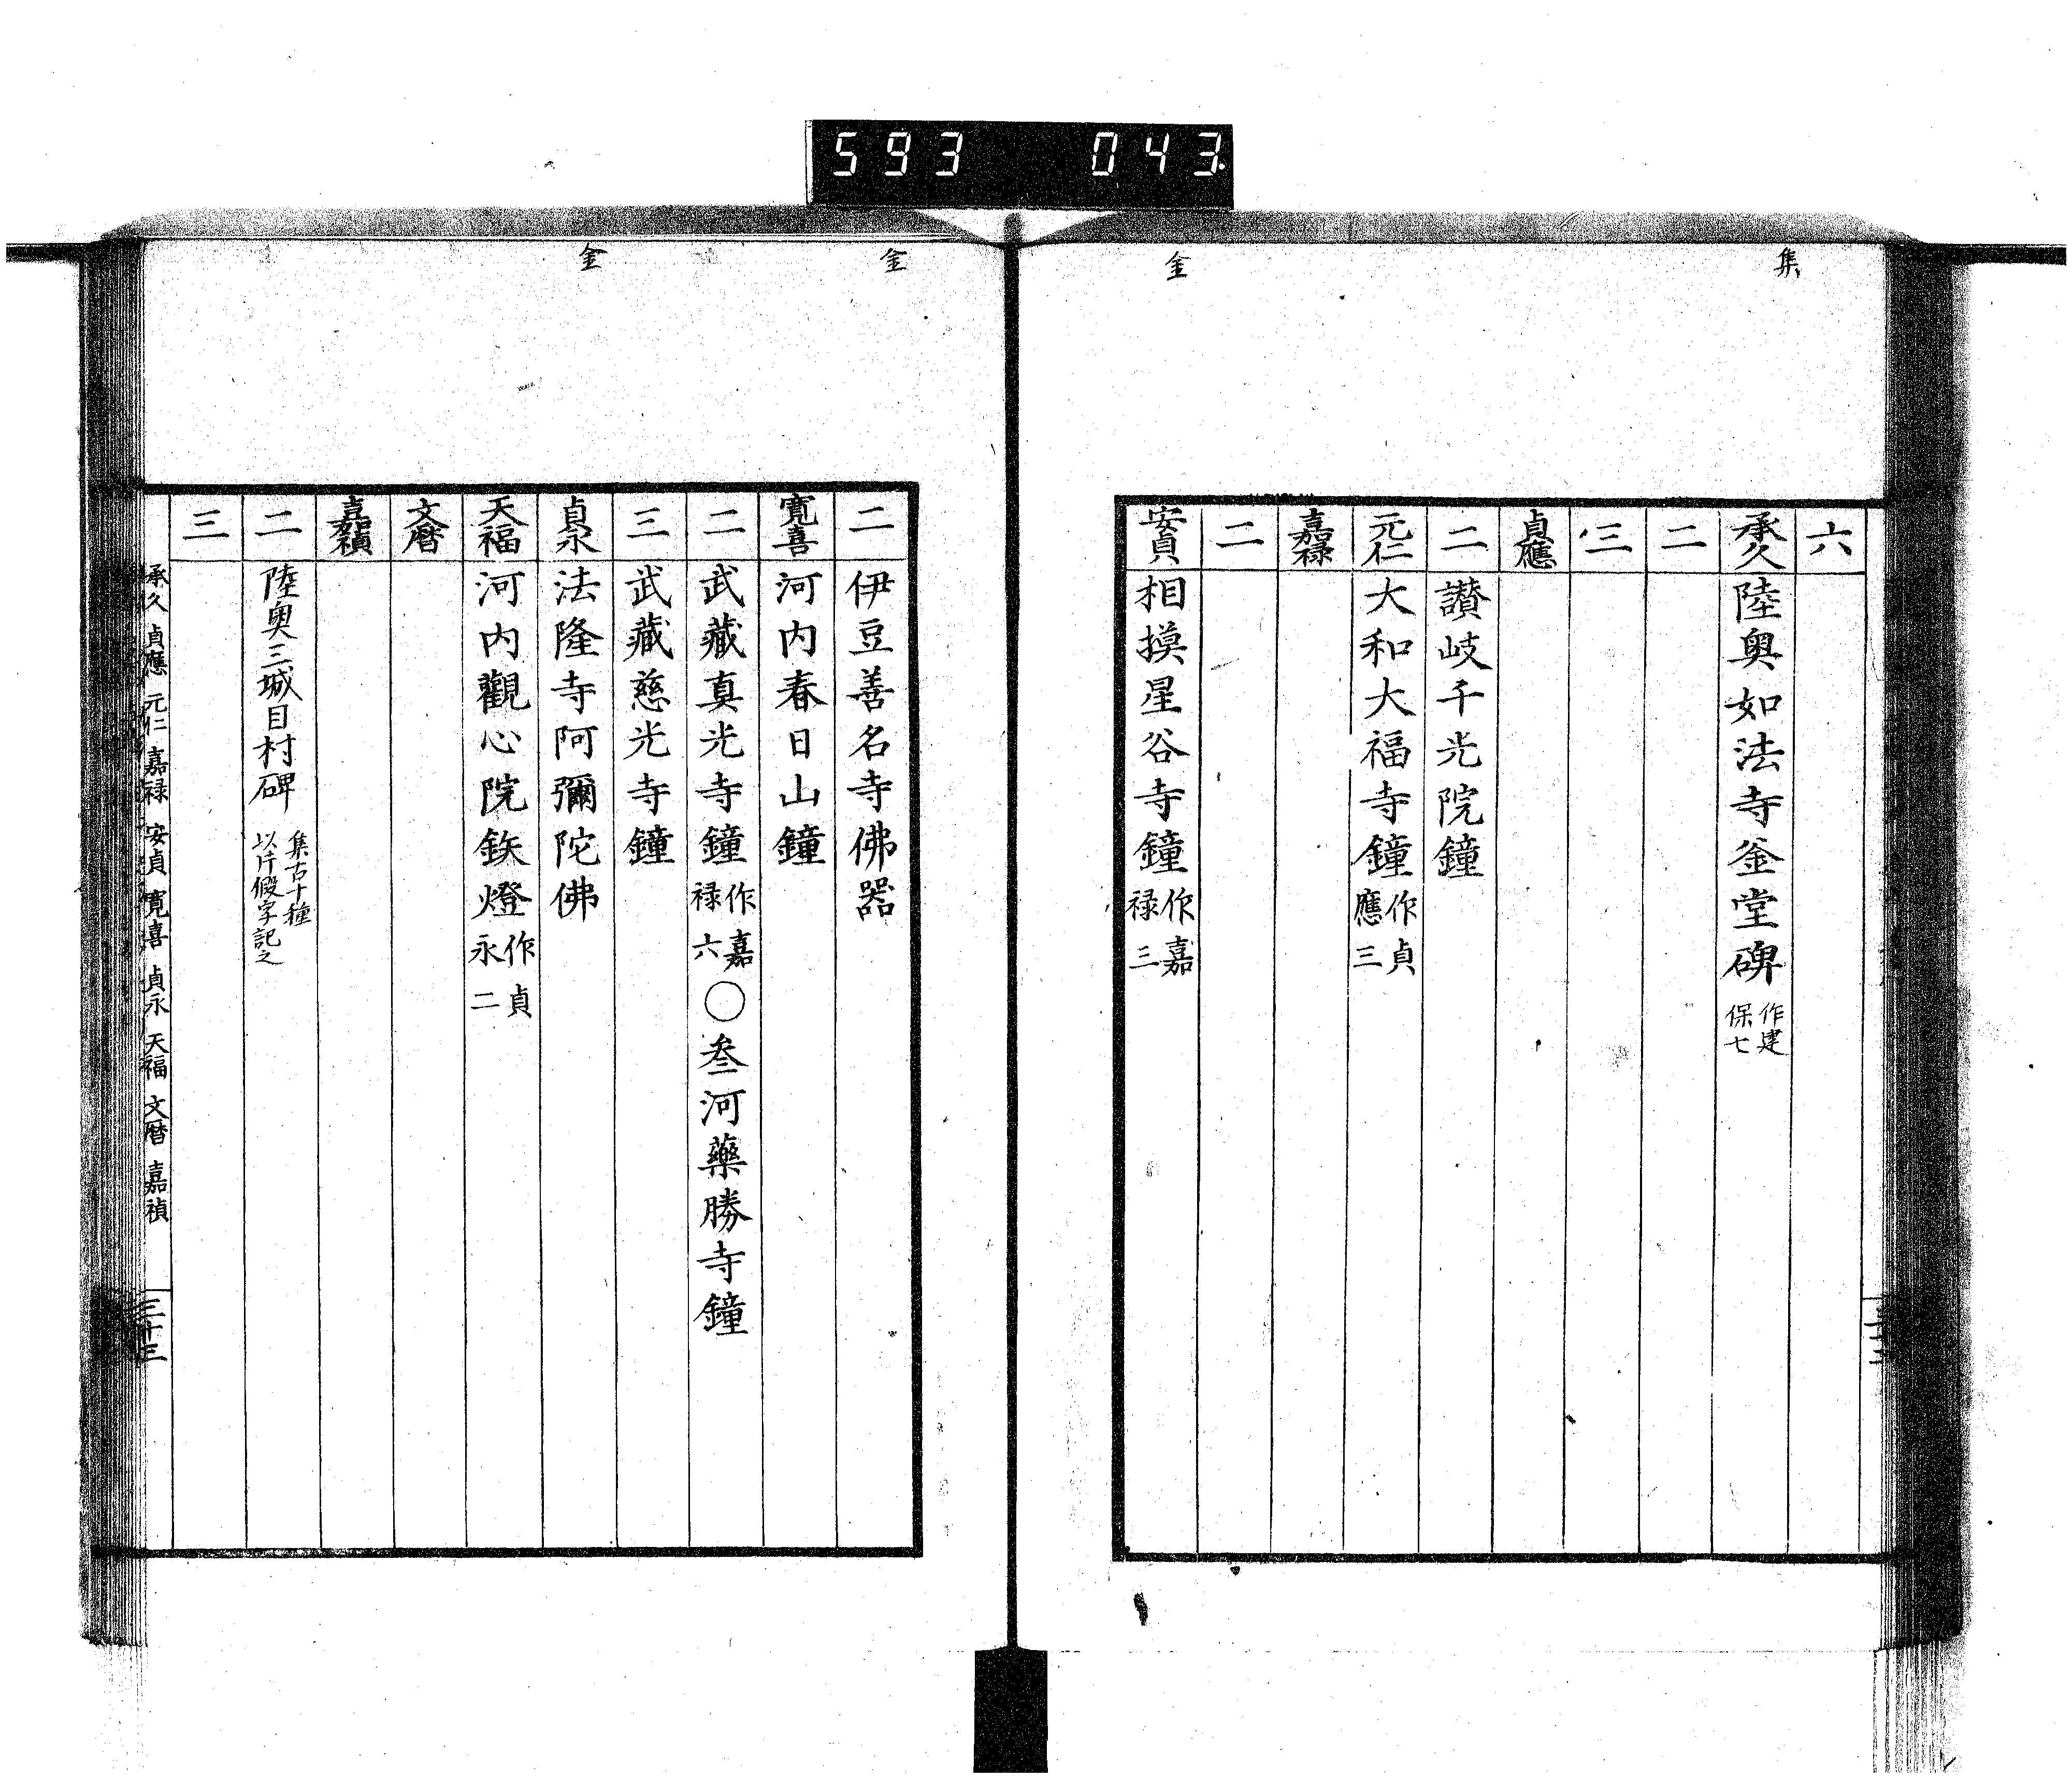 593 043
集
金
六
承久 陸奥如法寺釜堂碑 作建保七
二
三
貞應
二 讃岐千光院鐘
元仁 大和大福寺鐘 作貞應三
嘉禄
二
安貞 相摸星谷寺鐘 作嘉禄三
金
金
二 伊豆善名寺佛器
寛喜 河内春日山鐘
二 武藏真光寺鐘 作嘉禄六 〇叁河藥勝寺鐘
三 武藏慈光寺鐘
貞永 法隆寺阿彌陀佛
天福 河内觀心院鉃燈 作貞永二
文暦
嘉禎
二 陸奥三城目村碑 集古十種以片假字記之
三
承久 貞應 元仁 嘉禄 安貞 寛喜 貞永 天福 文暦 嘉禎
三十三